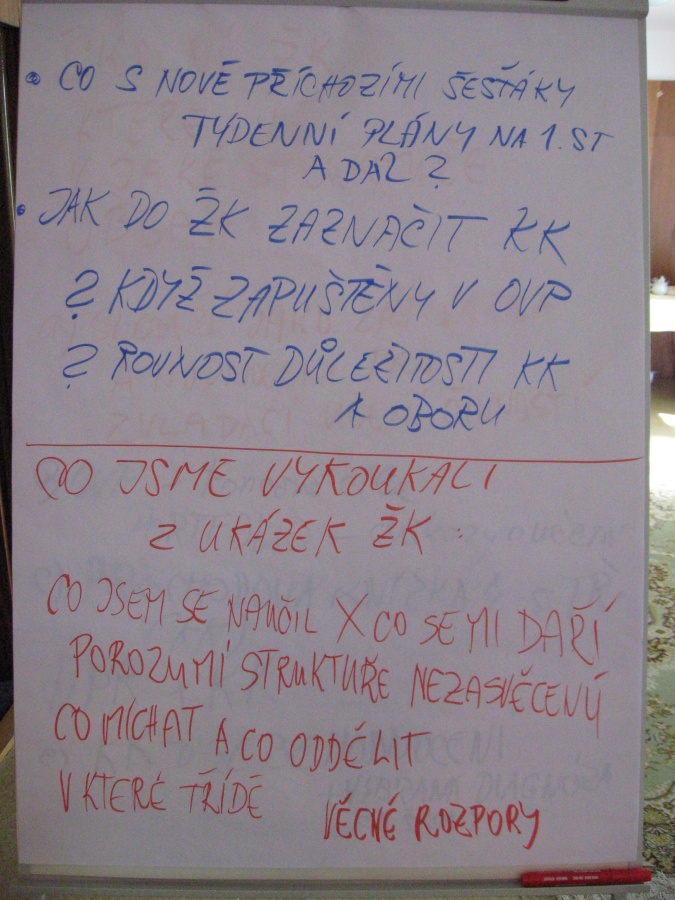 • CO S NOVĚ PŘÍCHOZÍMI ŠESŤÁKY
TÝDENNÍ PLÁNY NA 1. ST
A DAL ?
• JAK DO ŽK ZAZNAČIT KK
? KDYŽ ZAPUŠTĚNY V OVP
? ROVNOST DŮLEŽITOSTI KK
A OBORU
CO JSME VYKOUKALI
Z UKÁZEK ŽK:
CO JSEM SE NAUČIL X CO SE MI DAŘÍ
POROZUMÍ STRUKTUŘE NEZASVĚCENÝ
CO MÍCHAT A CO ODDĚLIT
V KTERÉ TŘÍDĚ
VĚCNÉ ROZPORY